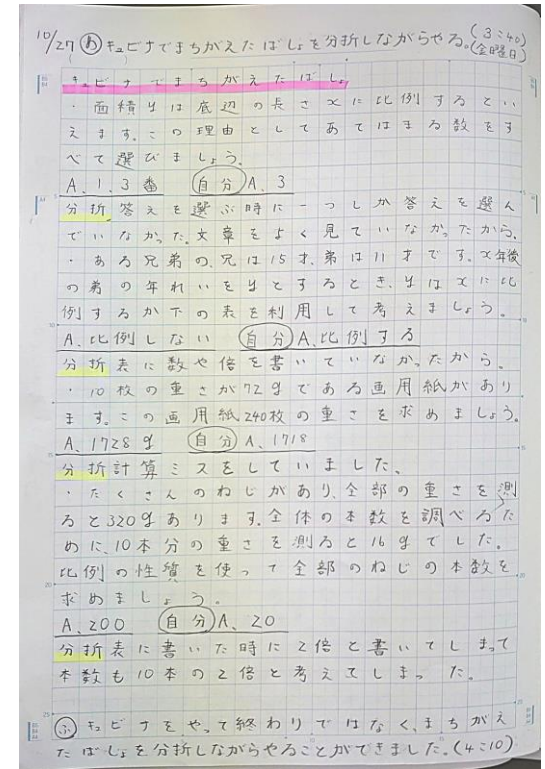 10/27 め キュビナでまちがえたばしょを分折しながらやる。(3:40)(金曜日)
キュビナでまちがえたばしょ
・面積yは底辺の長さxに比例するとい
えます。この理由としてあてはまる数をす
べて選びましょう。
A.1.3番 自分A.3
分折 答えを選ぶ時に一つしか答えを選ん
でいなかった。文章をよく見ていなかったから。
・ある兄弟の、兄は15才、弟は11才です。x年後
の弟の年れいをyとするとき、yはxに比
例するか下の表を利用して考えましょう。
A.比例しない 自分A.比例する
分折表に数や倍を書いていなかったから。
・10枚の重さが72gである画用紙があり
ます。この画用紙240枚の重さを求めましょう。
A.1728g 自分A.1718
分折計算ミスをしていました。
・たくさんのねじがあり、全部の重さを測
ると320gあります。全体の本数を調べるた
めに、10本分の重さを測ると16gでした。
比例の性質を使って全部のねじの本数を
求めましょう。
A.200 自分A.20
分折表に書いた時に2倍と書いてしまって
本数も10本の2倍と考えてしまった。
ふ キュビナをやって終わりではなく、まちがえ
たばしょを分折しながらやることができました。(4:10)